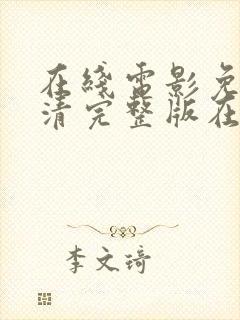 在綫電影免
清完整版在
李文琦